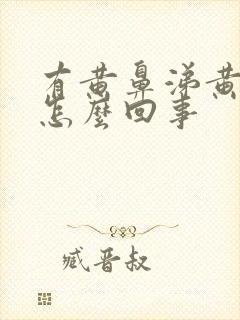 有黄鼻涕黄
怎麼回事
臧晋叔